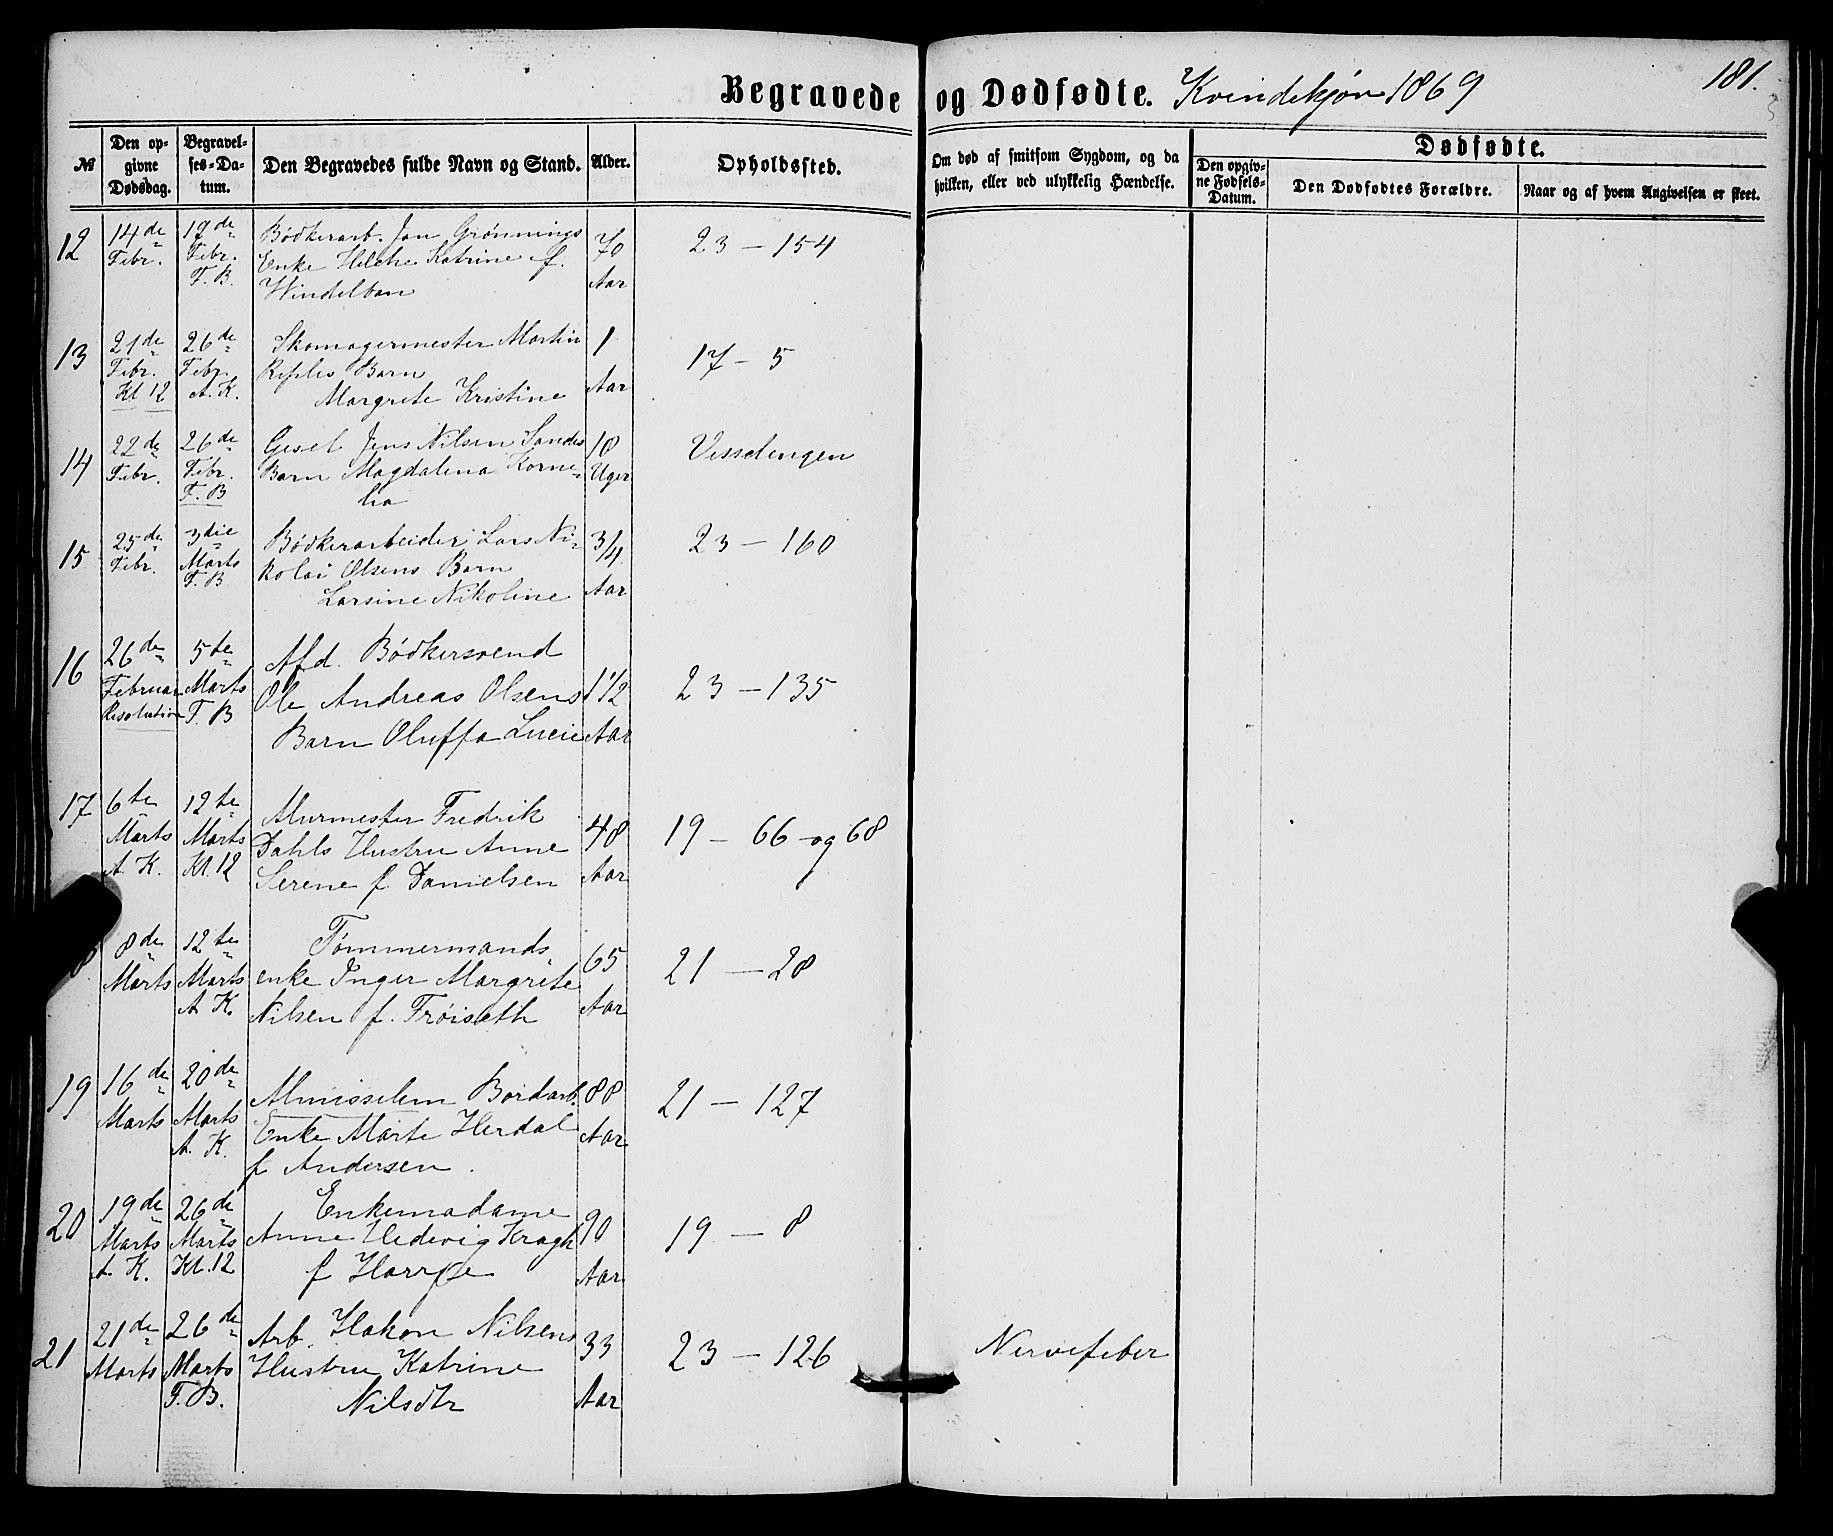 Begravede og Dødfødte. Kvindekjøn 1869
181.
№ Den opgivne Dødsdag. Begravelses-Datum. Den Begravedes fulde Navn og Stand. Alder. Opholdssted. Om død af smitsom Sygdom, og da hvilken, eller ved ulykkelig Hændelse. Dødfødte. Den opgivne Fødsels-Datum. Den Dødfødtes Forældre. Naar og af hvem Angivelsen er skeet.
12 14de 17de Bødkerarb. Jan Grønnings 70 23 - 154
Febr. Febr. Enke Helche Katrine f. Aar
F. B. Windelban
13 21de 26de Skomagermester Martin 1 17 - 5
Febr. Febr. Barn Aar
Kl 12 A. K. Margrete Kristine
14 22de 26de Gesel Jens Nilsen Sandes 10 Visselengen
Febr. Febr. Barn Magdalena Korne- Uger
F. B lia
15 25de 3die Bødkerarbeider Lars Ni- 3/4 23 - 160
Febr. Marts kolai Olsens Barn Aar
F. B Larsine Nikoline
16 26de 5te Afd. Bødkersvend 1 1/2 23 - 135
Februar Marts Ole Andreas Olsens Aar
Resolution F. B Barn Oluffa Lucie
17 6te 12te Murmester Fredrik 48 19 - 66 og 68
Marts Marts Dahls Hustru Anne Aar
A. K. Kl. 12 Serene f Danielsen
8de 12te Tømmermands 65 21 - 28
Marts Marts enke Inger Margrete Aar
A K. Nilsen f. Trøisæth
19 16de 20de Almisselem Bordarb. 88 21 - 127
Marts Marts Enke Marte Herdal Aar
A. K. f Andersen.
20 19de 26de Enkemadame 90 19 - 8
Marts Marts Anne Hedevig Kragh Aar
A. K. Kl. 12 f
21 21de 26de Arb. Hakon Nilsens 33 23 - 126 Nervefeber
Marts Marts Hustru Katrine Aar
F. B. Nilsdtr